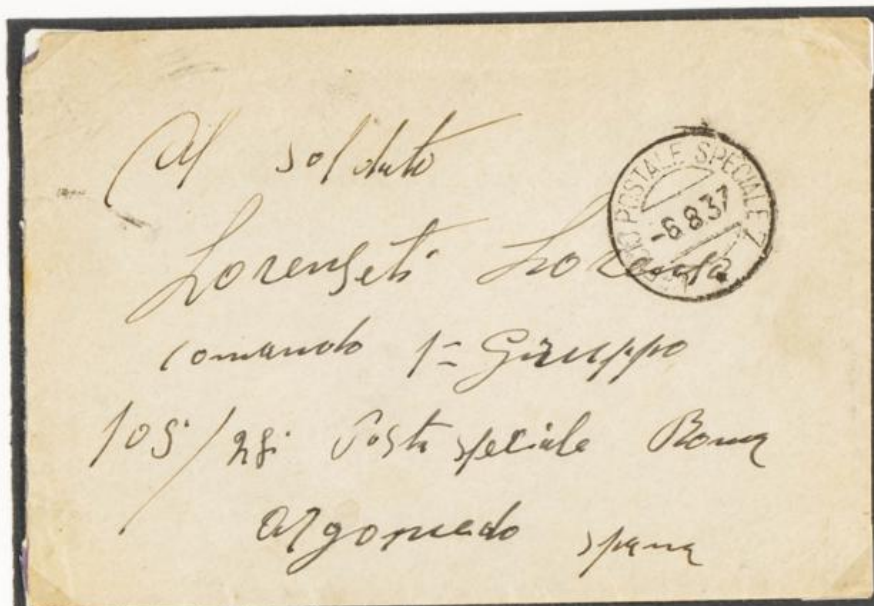 Al soldato
Lorenseti Lorenso
comando 1= Gruppo
105/28 Posta speciale Roma
Argomedo spana
UFFICIO POSTALE SPECIALE 7
-6.8.37